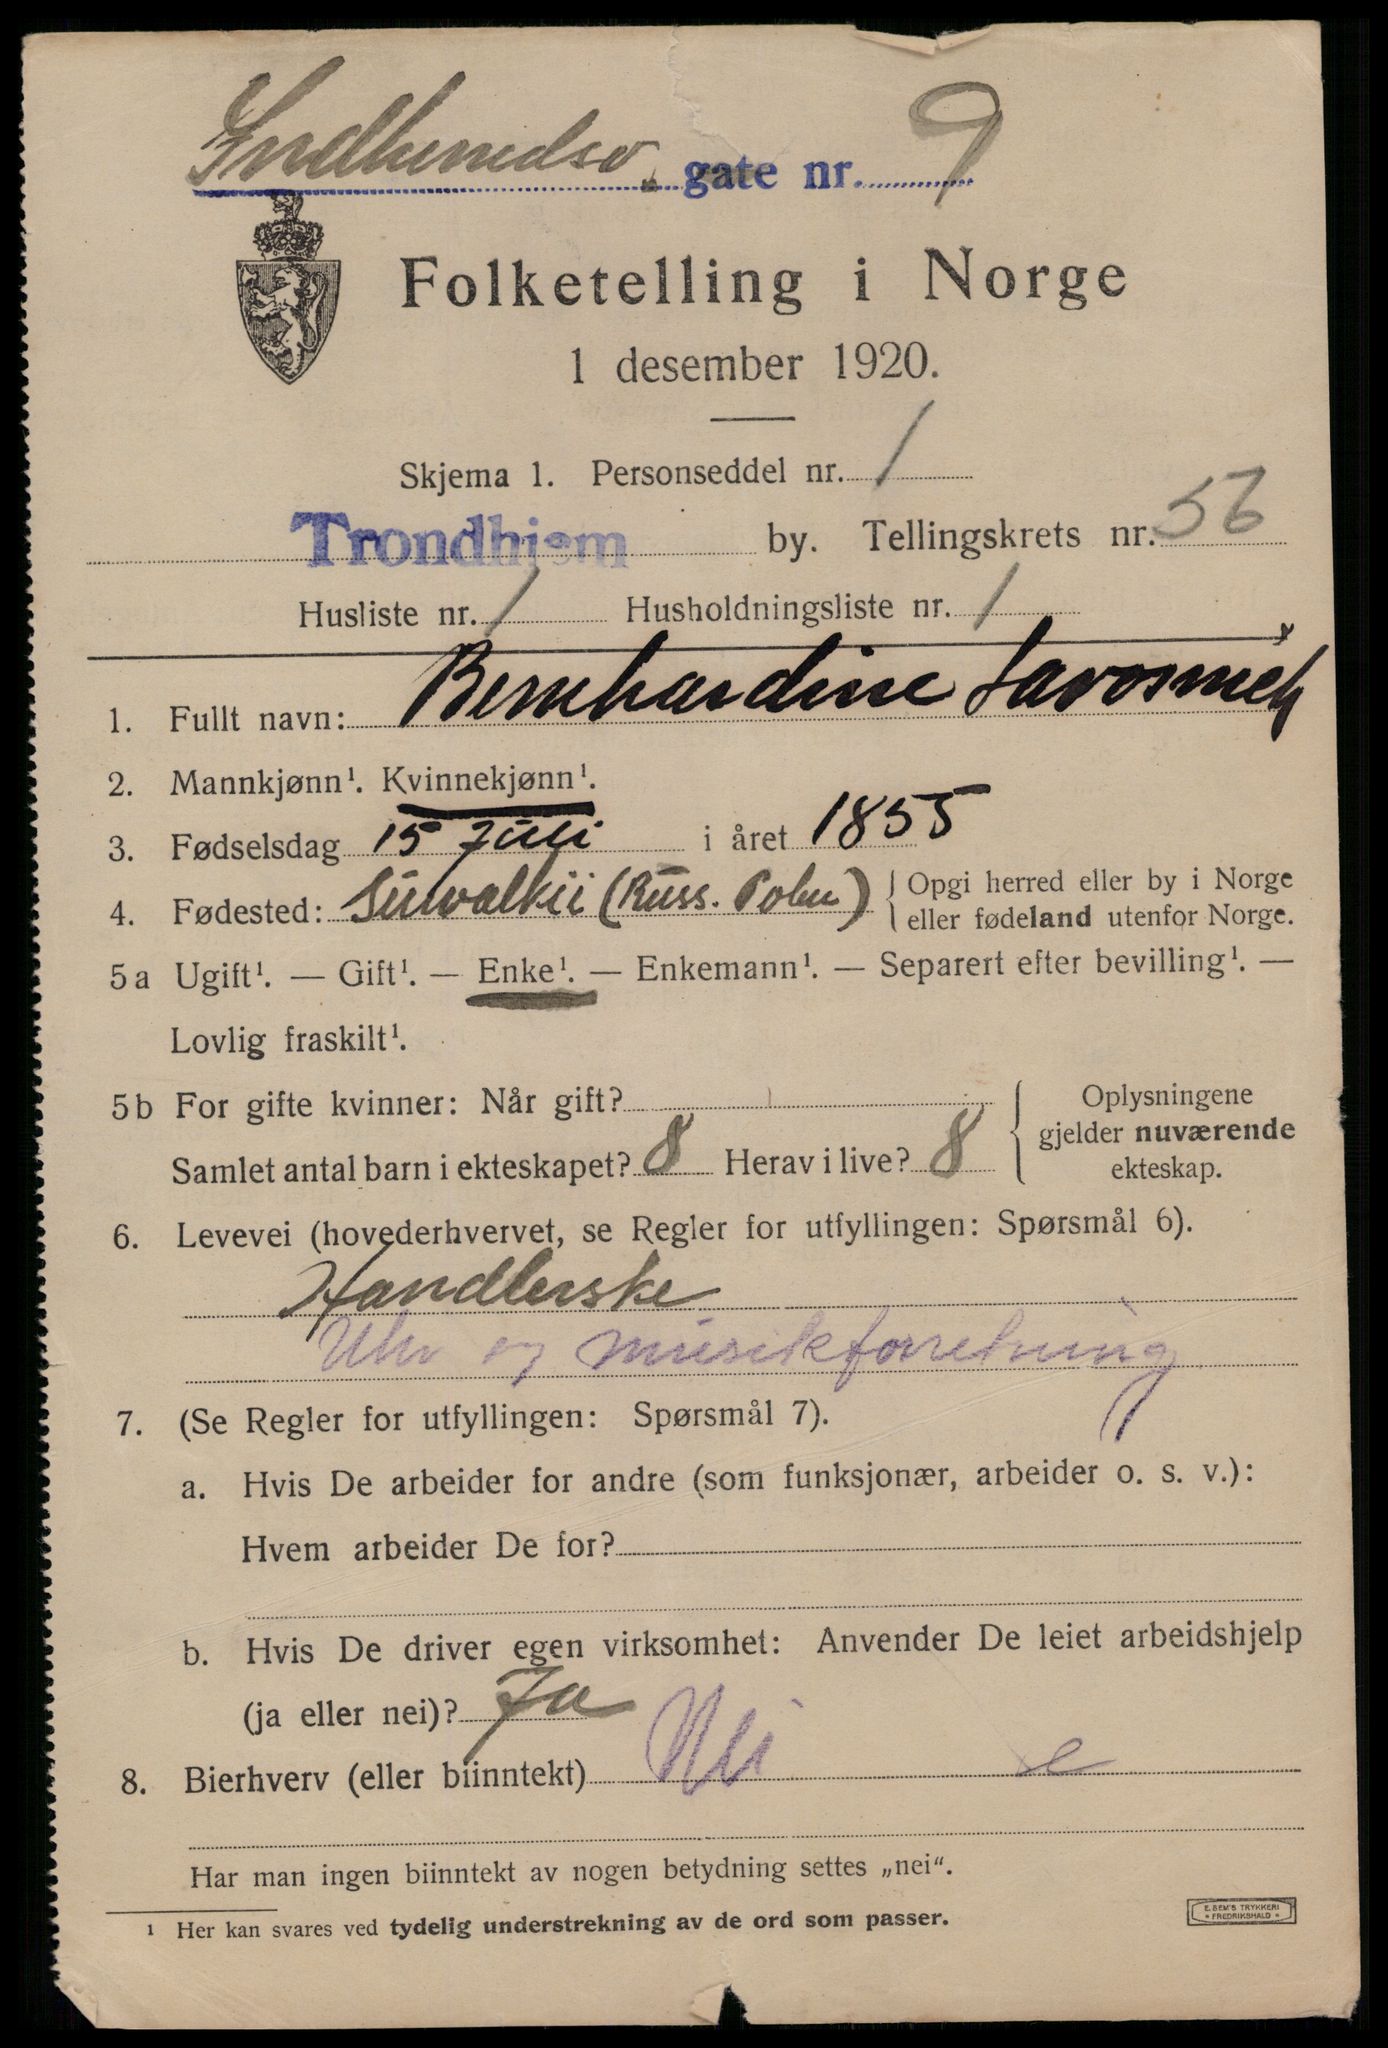 Indherredsv. gate nr. 9
Folketelling i Norge
1 desember 1920.
Skjema 1. Personseddel nr. 1
Trondhjem by. Tellingskrets nr. 56
Husliste nr. 1 Husholdningsliste nr. 1
1. Fullt navn: Bernhardine
2. Mannkjønn¹. Kvinnekjønn¹.
3. Fødselsdag 15 Juli i året 1855
4. Fødested: Suwalkii (Russ. Polen) { Opgi herred eller by i Norge
eller fødeland utenfor Norge.
5a Ugift¹. — Gift¹. — Enke¹. — Enkemann¹. — Separert efter bevilling¹. —
Lovlig fraskilt¹.
5b For gifte kvinner: Når gift?
Samlet antal barn i ekteskapet? 8 Herav i live? 8
Oplysningene
gjelder nuværende
ekteskap.
6. Levevei (hovederhvervet, se Regler for utfyllingen: Spørsmål 6).
Handlerske
Uhr og musikforretning
7. (Se Regler for utfyllingen: Spørsmål 7).
a. Hvis De arbeider for andre (som funksjonær, arbeider o. s. v.):
Hvem arbeider De for?
b. Hvis De driver egen virksomhet: Anvender De leiet arbeidshjelp
(ja eller nei)? Ja
8. Bierhverv (eller biinntekt) Nei
Har man ingen biinntekt av nogen betydning settes „nei“.
¹ Her kan svares ved tydelig understrekning av de ord som passer.
E. SEM'S TRYKKERI
* FREDRIKSHALD *